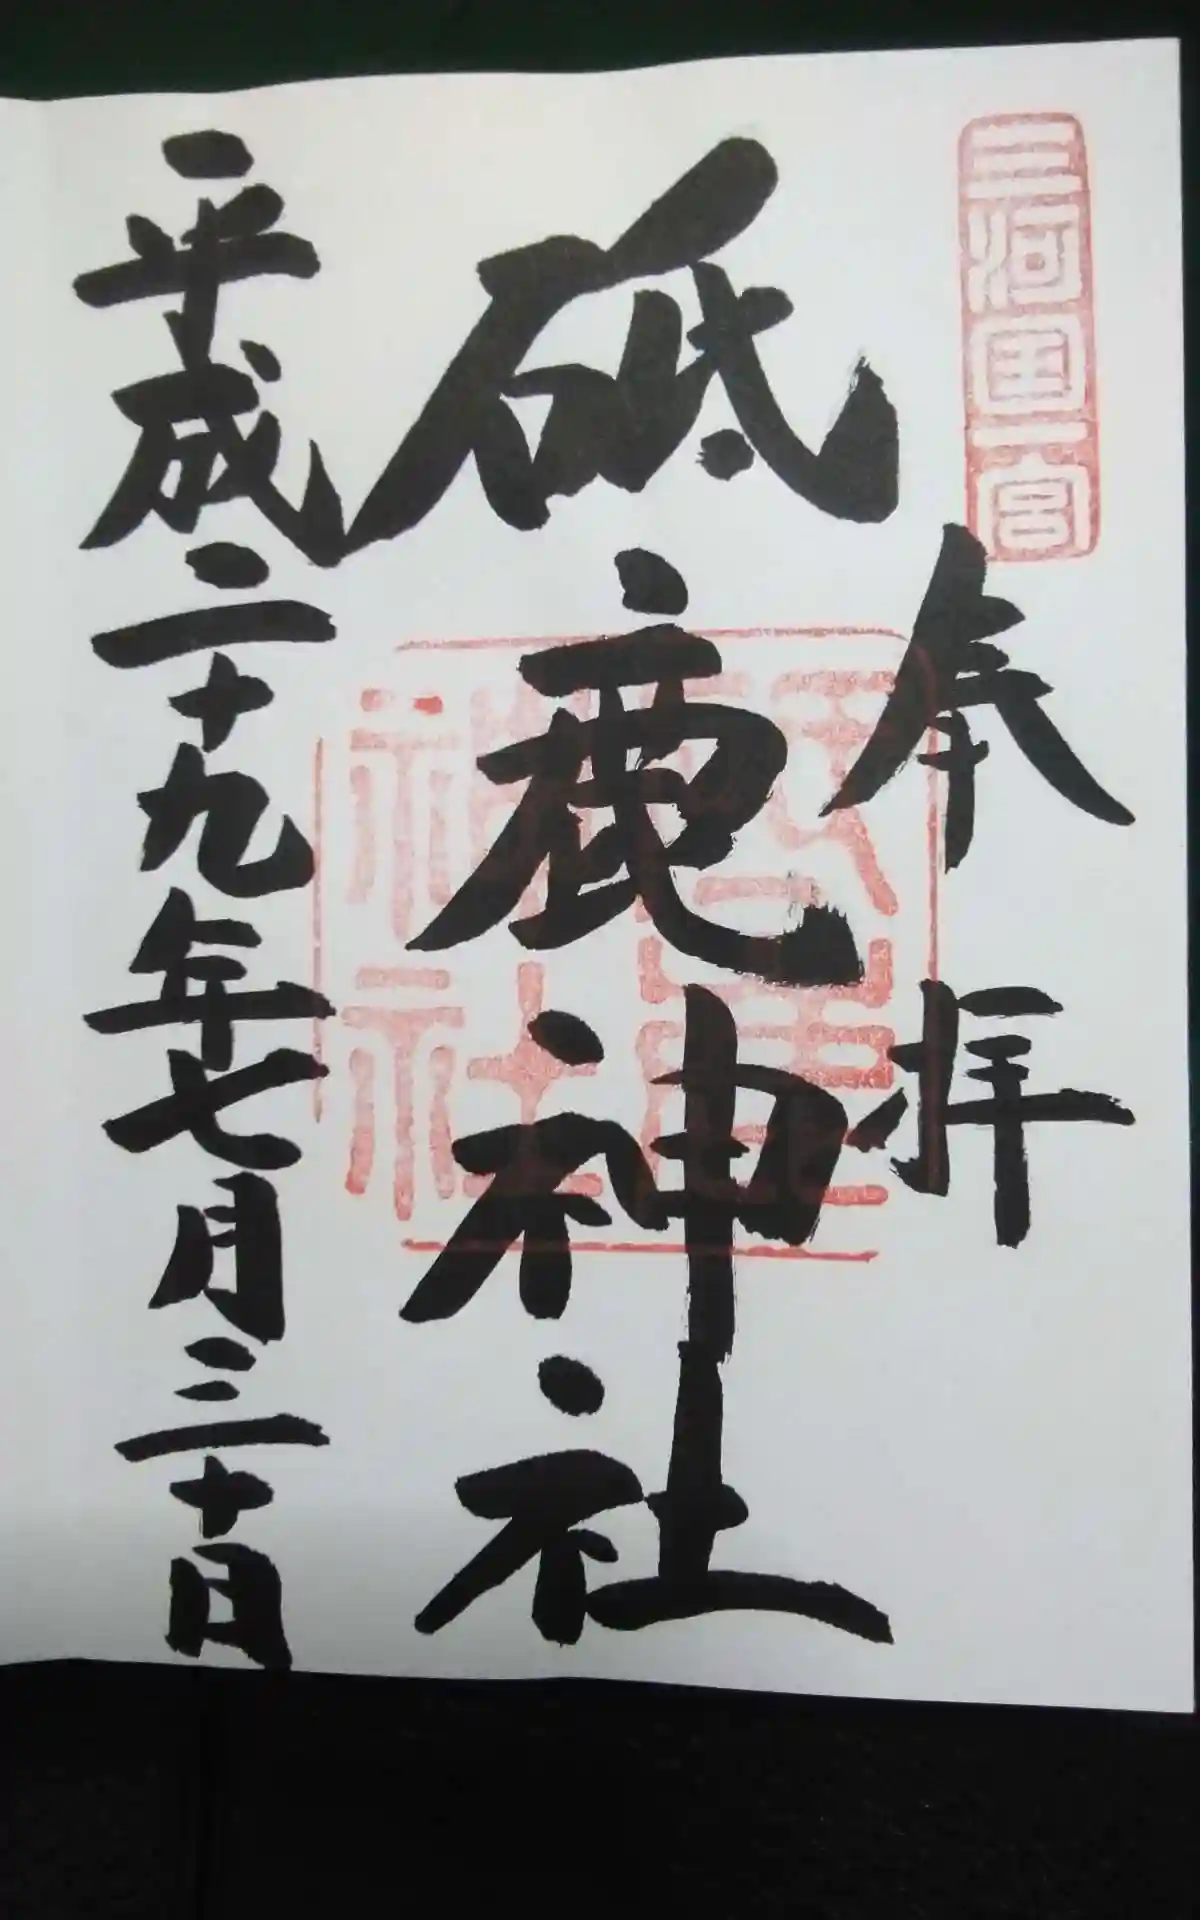 三河国一宮
奉拝
砥鹿神社
砥鹿神社
平成二十九年七月三十日